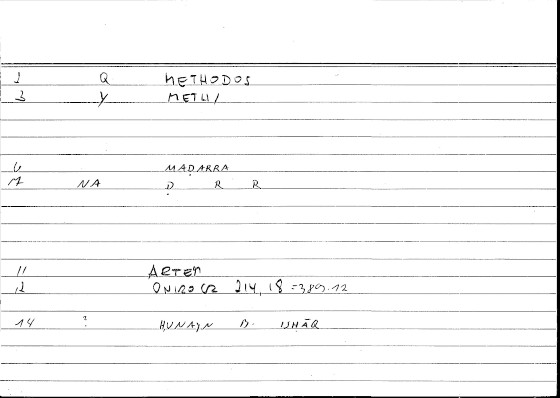 1 Q METHODOS
3 y METH/
6 MAḌARRA
7 NA Ḍ R R
11 ARTEM
12 ONIROCR 214,18 = 389.12
14 ? ḤUNAYN B. ISḤĀQ